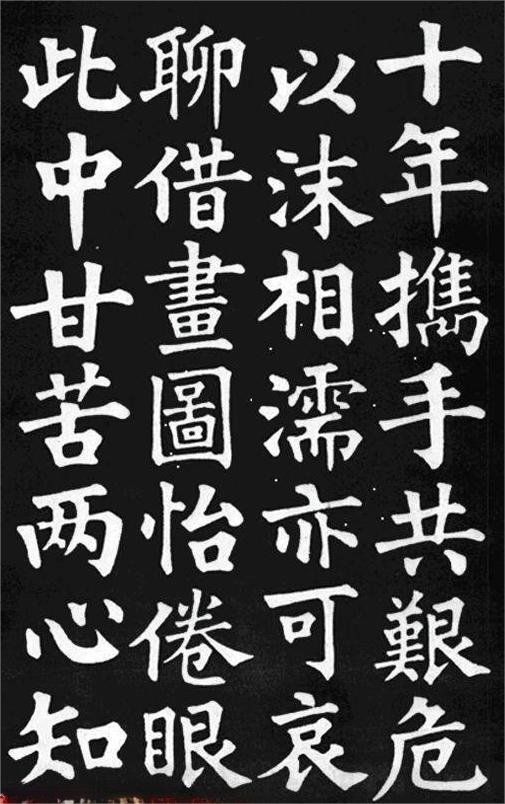 十年攜手共艱危
以沫相濡亦可哀
聊借畫圖怡倦眼
此中甘苦两心知